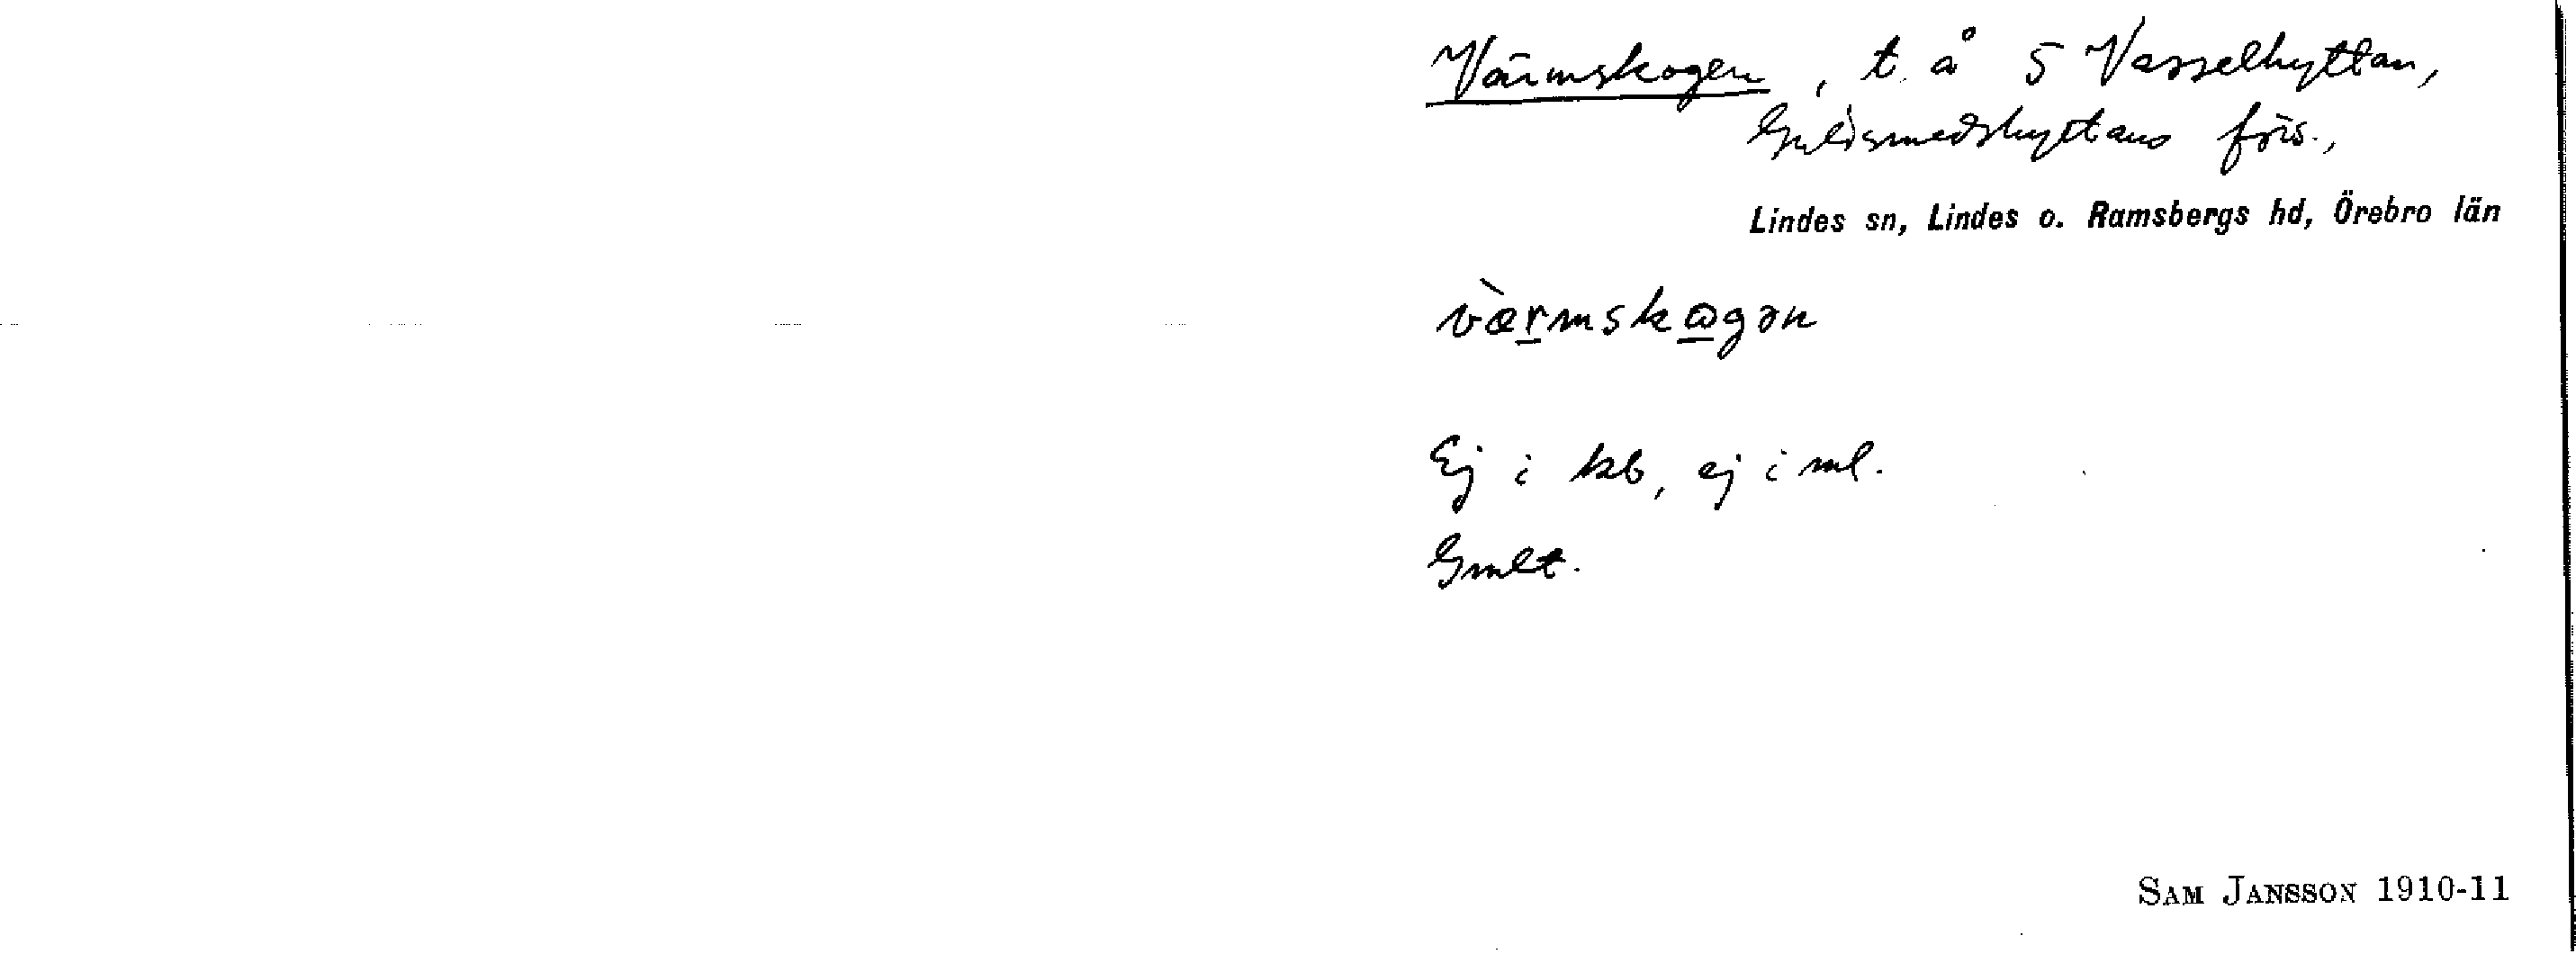 Värmskogen, t. å 5 Vasselhyttan,
Guldsmedshyttans förs.,
Lindes sn, Lindes o. Ramsbergs hd, Örebro län
væ̀rmskωgən
Ej i kb, ej i ml.
Gmlt.
SAM JANSSON 1910-11